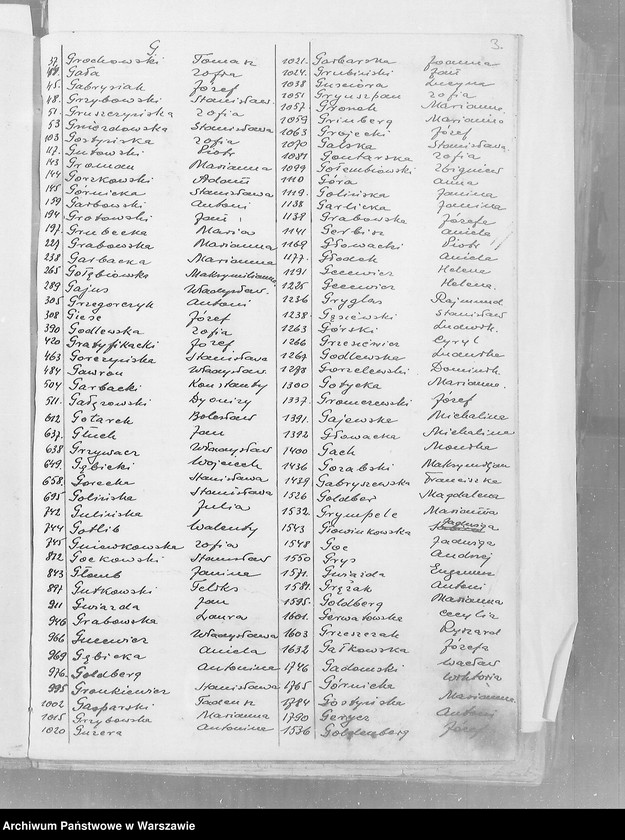 G.
3.
37. Grochowski Tomasz
Gała Zofia
45. Gabrysiak Józef
48. Grzybowski Stanisław.
51. Gruszczyńska Zofia
53 Gniazdowska Stanisława
103 Gostyńska Zofia
117. Gutowski Piotr
143 Groman Marianna
144 Gorzkowski Adam
145 Górnicka Stanisława
159 Garbowski Antoni
194 Grotowski Jan
197. Grubecka Maria
227 Grabowska Marianna
238 Garbacka Marianna
265 Gołębiowska Maksymilianna.
289 Gajus Władysław.
305 Grzegorczyk Antoni
308 Giese Józef
390 Godlewska Zofia
420 Gratyfikacki Józef
463 Gorczyńska Stanisława
484 Gawron Władysław.
504 Garbacki Konstanty
511. Gałązowski Dyonizy
612 Gotarek Bolesław
637. Głuch Jan
638 Grzywacz Władysław
649. Gębicki Wojciech
658. Gorecka Stanisława
695 Golińska Stanisława
742 Gulińska Julia
744 Gotlib Walenty
745 Gniewkowska Zofia
822 Gockowski Stanisław
843 Głomb Janina
897 Gutkowski Feliks
911 Gwiazda Jan
946 Grabowska Laura
966 Gucewicz Władysława
969 Gębicka Aniela
976. Goldberg Antonina
995 Gronkiewicz Stanisława
1002 Gasparski Tadeusz
1015 Grzybowska Marianna
1020 Guzera Antonina
1021. Garbarska Joanna
1024. Grubiński Jan
1038 Guściora Lucyna
1051 Grynszpan Zofia
1057. Głonek Marianna
1059 Grinberg Marianna
1063 Grojecki Józef
1070 Galska Stanisława.
1081 Gontarska Zofia
1099 Gołembiowski Zbigniew
1110 Góra Anna
1119. Golińska Janina
1138 Garlicka Janina
1139 Grabowska Józefa
1141 Gerbisz Aniela
1169 Głowacki Piotr
1177. Głodek Aniela
1191 Gecewicz Helena
1225 Gecewicz Helena.
1236 Gryglas Rajmund
1238. Gąsiewski Stanisław
1263 Górski Ludwik.
1266 Grzesiewicz Cyryl
1267 Godlewska Ludwika
1278 Gorzelewski Dominik.
1300 Gotycka Marianna.
1337. Gromczewski Józef
1391. Gajewska Michalina
1392 Głowacka Michalina
1400 Gach Monika
1436 Gozabski Maksymiljan
1479 Gabryszewska Franciszka
1526 Goldber Magdalena
1532. Grympele Marianna
1543 Głowinkowska Jadwiga
1548 Goc Jadwiga
1550 Grys Andrzej
1571. Gwiazda Eugeniusz
1581. Grężak Antoni
1595. Goldberg Marianna
1601. Gerwatowska Cecylia
1603 Grzeszczak Ryszard
1632 Gałkowska Józefa
1746 Gadomski Wacław
1765 Górnicka Wiktoria
1784 Gostyńska Marianna
1790 Gerycz Antoni
1536 Goldenberg Józef
Archiwum Państwowe w Warszawie